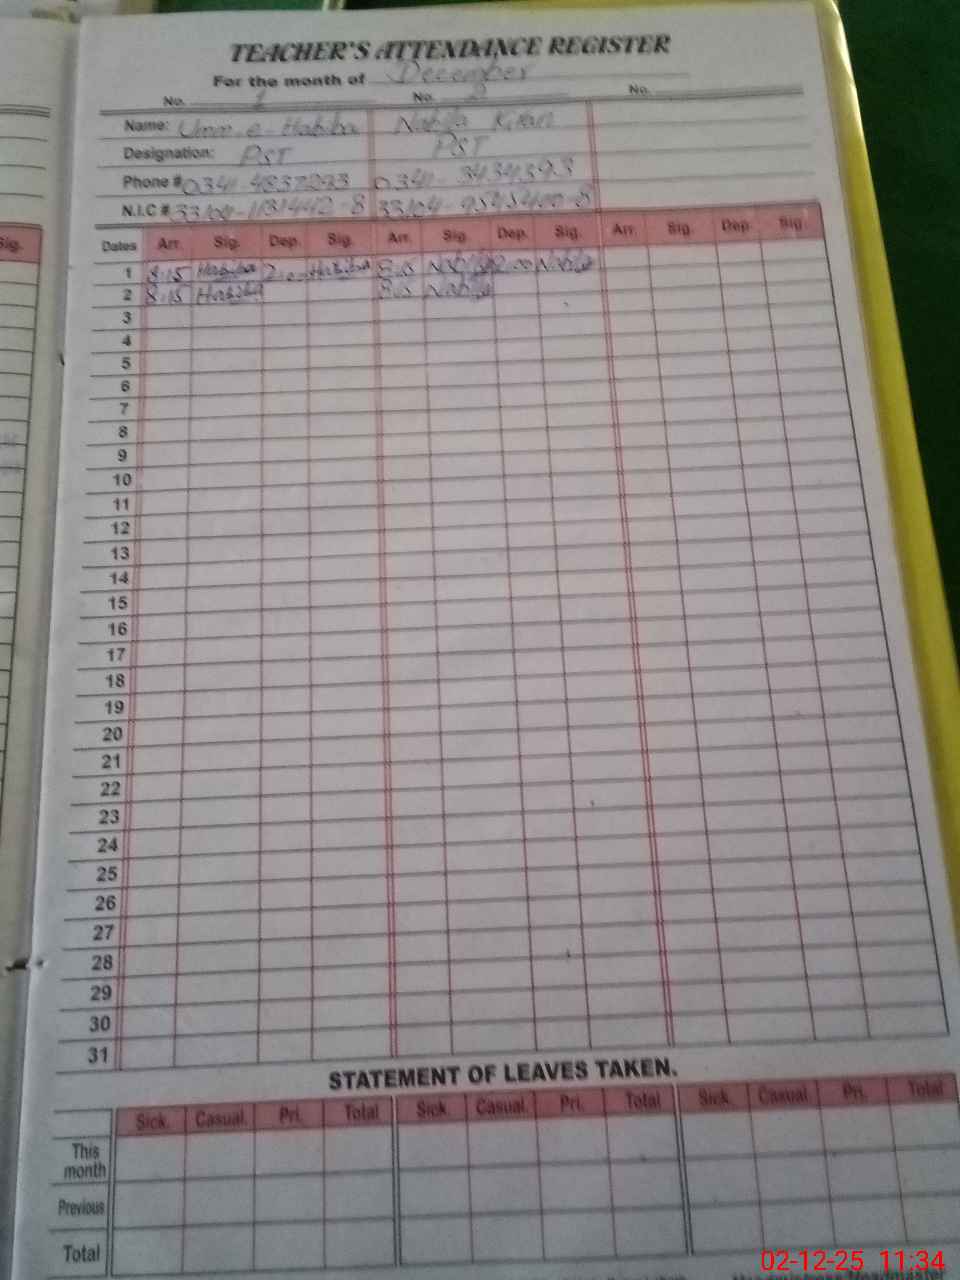 TEACHER'S ATTENDANCE REGISTER
For the month of December
No. 1 No. 2 No.
Name: Umm e Habiba Nabila Kiran
Designation: PST PST
Phone # 0341-4837293 0341-3434393
N.I.C # 33104-1131442-8 33104-9545400-8
Sig. Dates Arr. Sig. Dep. Sig. Arr. Sig. Dep. Sig. Arr. Sig. Dep. Sig.
1 8:15 Habiba 2:0 Habiba 8:15 Nabila 2:00 Nabila
2 8:15 Habiba 8:15 Nabila
3
4
5
6
7
8
9
10
11
12
13
14
15
16
17
18
19
20
21
22
23
24
25
26
27
28
29
30
31
STATEMENT OF LEAVES TAKEN.
Sick. Casual. Pri. Total Sick. Casual. Pri. Total Sick. Casual. Pri. Total
This month
Previous
Total
02-12-25 11:34